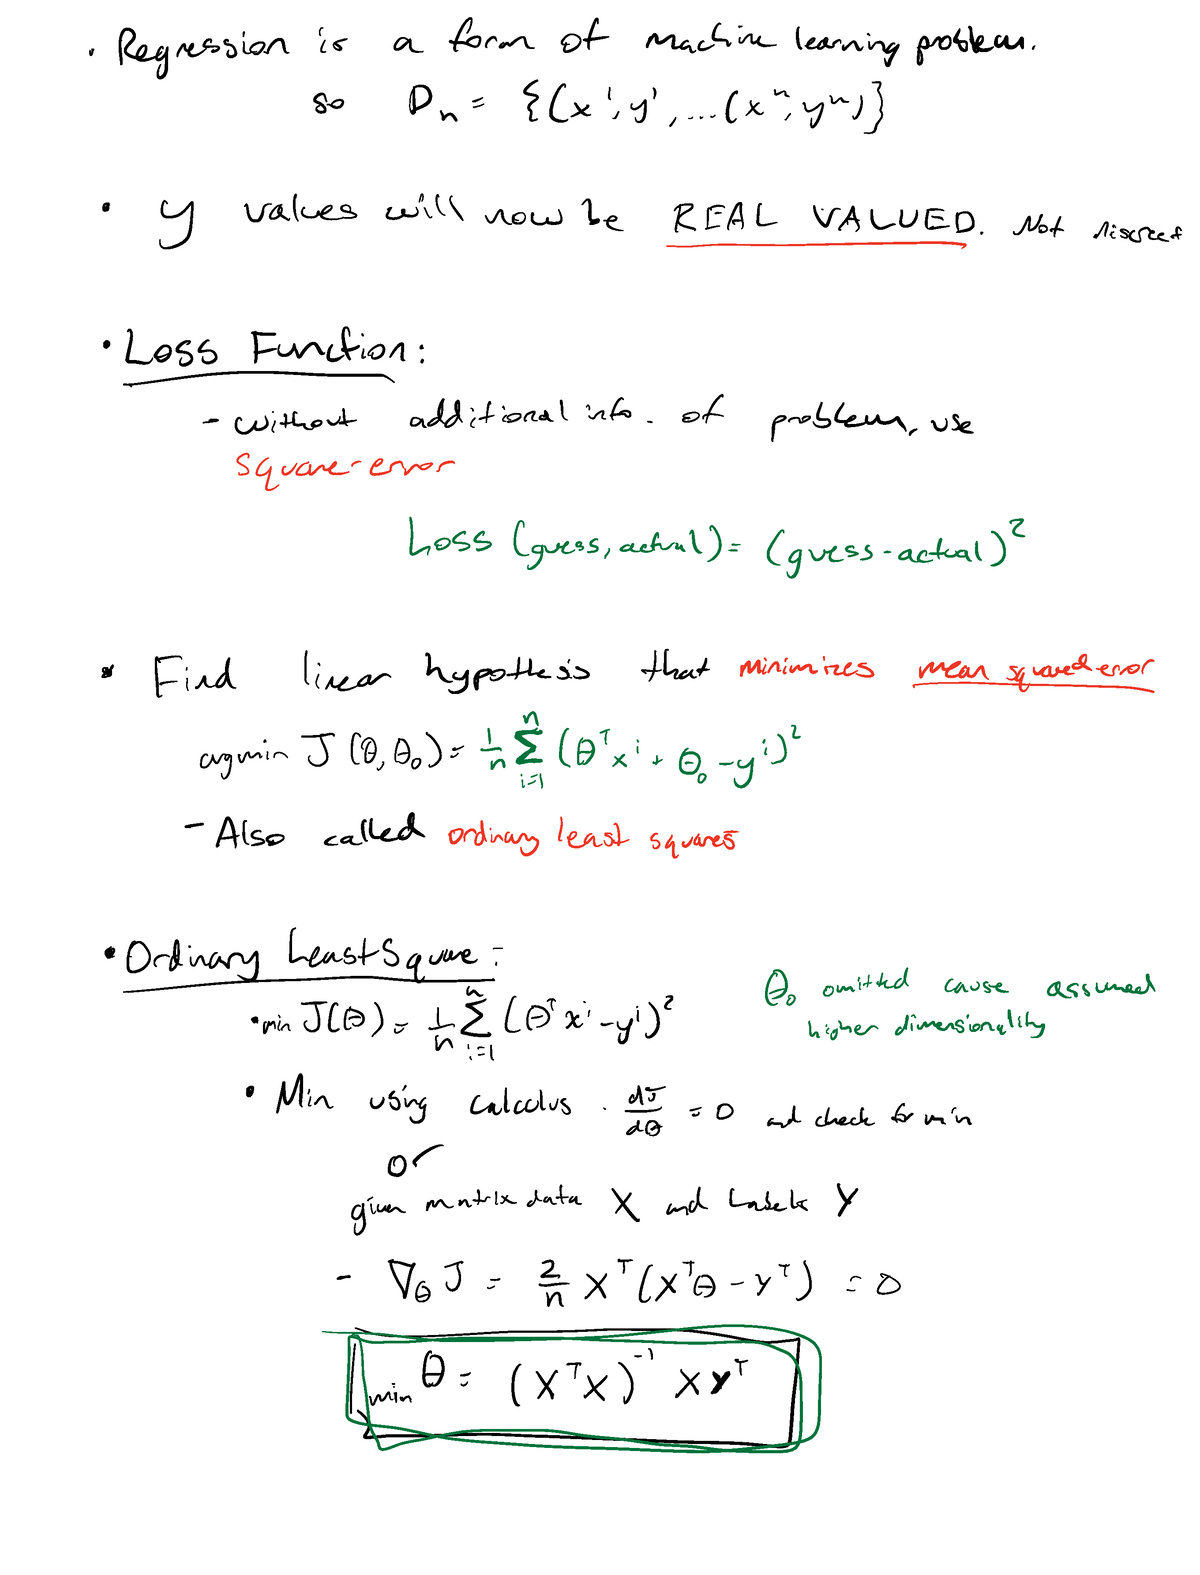 • Regression is a form of machine learning problem.
so Dₙ = {(x¹, y¹, ...(xⁿ, yⁿ)}
• y values will now be REAL VALUED. Not discreet
• Loss Function:
- without additional info. of problem, use
square-error
Loss (guess, actual) = (guess - actual)²
• Find linear hypothesis that minimizes mean squared error
argmin J(θ, θ₀) = 1/n Σⁿᵢ₌₁ (θᵀxⁱ + θ₀ - yⁱ)²
- Also called ordinary least squares
• Ordinary Least Square:
θ₀ omitted cause assumed
higher dimensionality
• min J(θ) = 1/n Σⁿᵢ₌₁ (θᵀxⁱ - yⁱ)²
• Min using calculus. dJ/dθ = 0 and check for min
or
given matrix data X and Labels Y
- ∇θ J = 2/n Xᵀ(Xᵀθ - Yᵀ) = 0
min θ = (XᵀX)⁻¹ XYᵀ